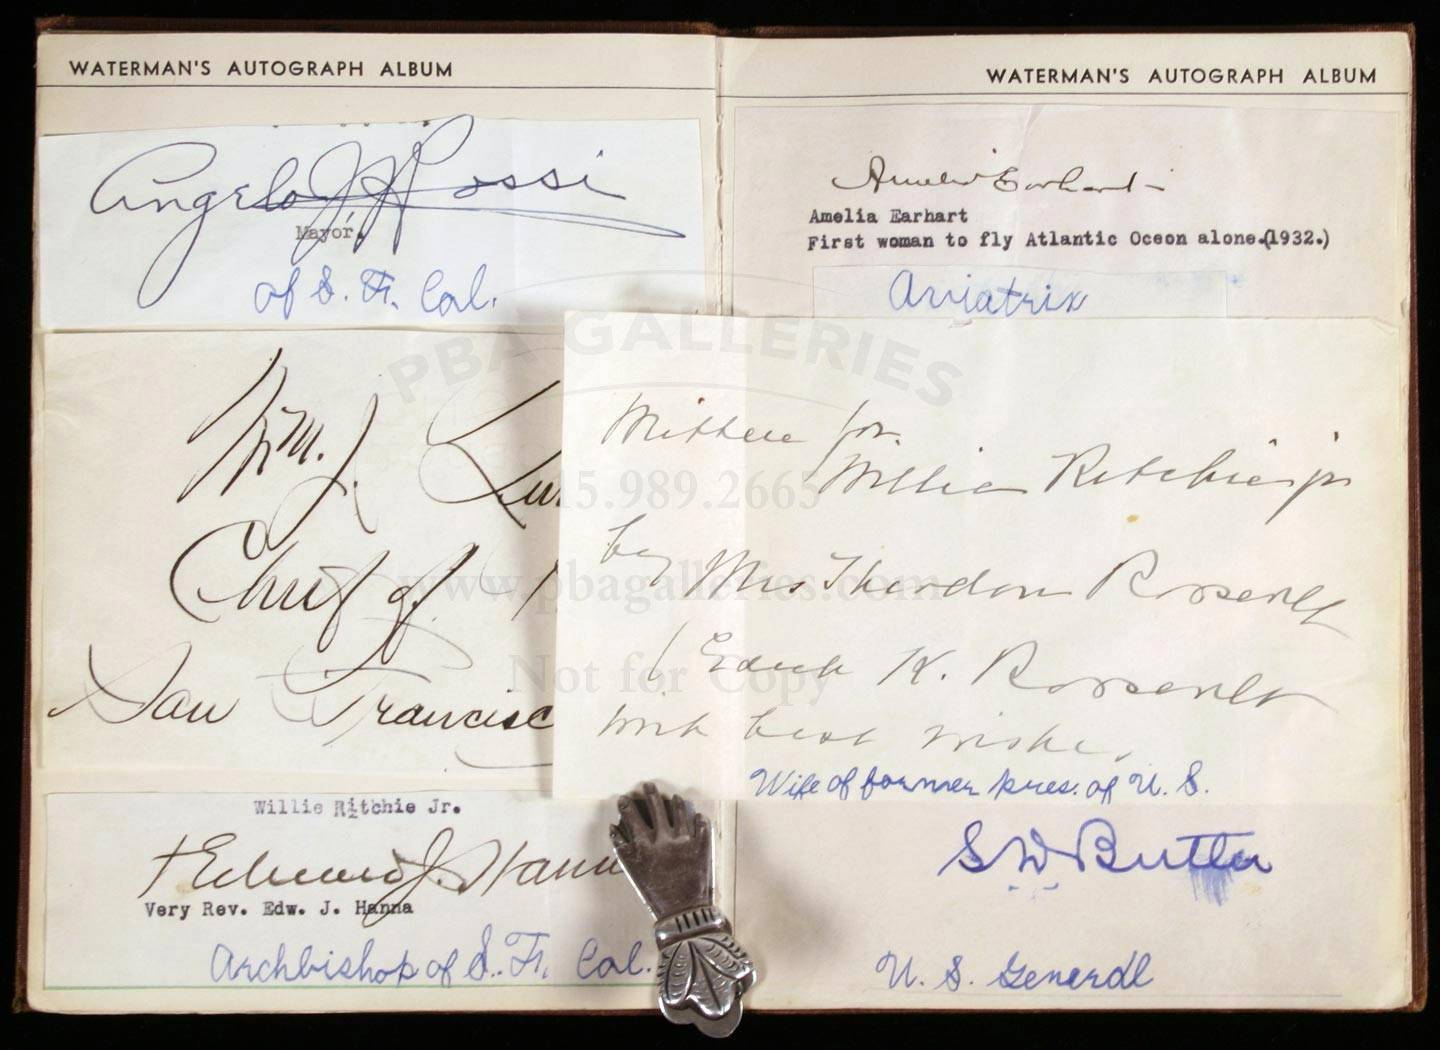 WATERMAN'S AUTOGRAPH ALBUM
Angelo J. Rossi
Mayor.
of S. Fr. Cal.
Wm. J.
Chief of
San Francisc
Willie Ritchie Jr.
+Edward J. Hann
Very Rev. Edw. J. Hanna
Archbishop of S. Fr. Cal.
WATERMAN'S AUTOGRAPH ALBUM
Amelia Earhart
Amelia Earhart
First woman to fly Atlantic Oceon alone.(1932.)
Aviatrix
Written for
Willie Ritchie jr
by Mrs Theodore Roosevelt
(Edith K. Roosevelt
with best wishes,
Wife of former pres. of U. S.
S D Butler
U. S. Generdl
PBA GALLERIES
15.989.2665
www.pbagalleries.com
Not for Copy